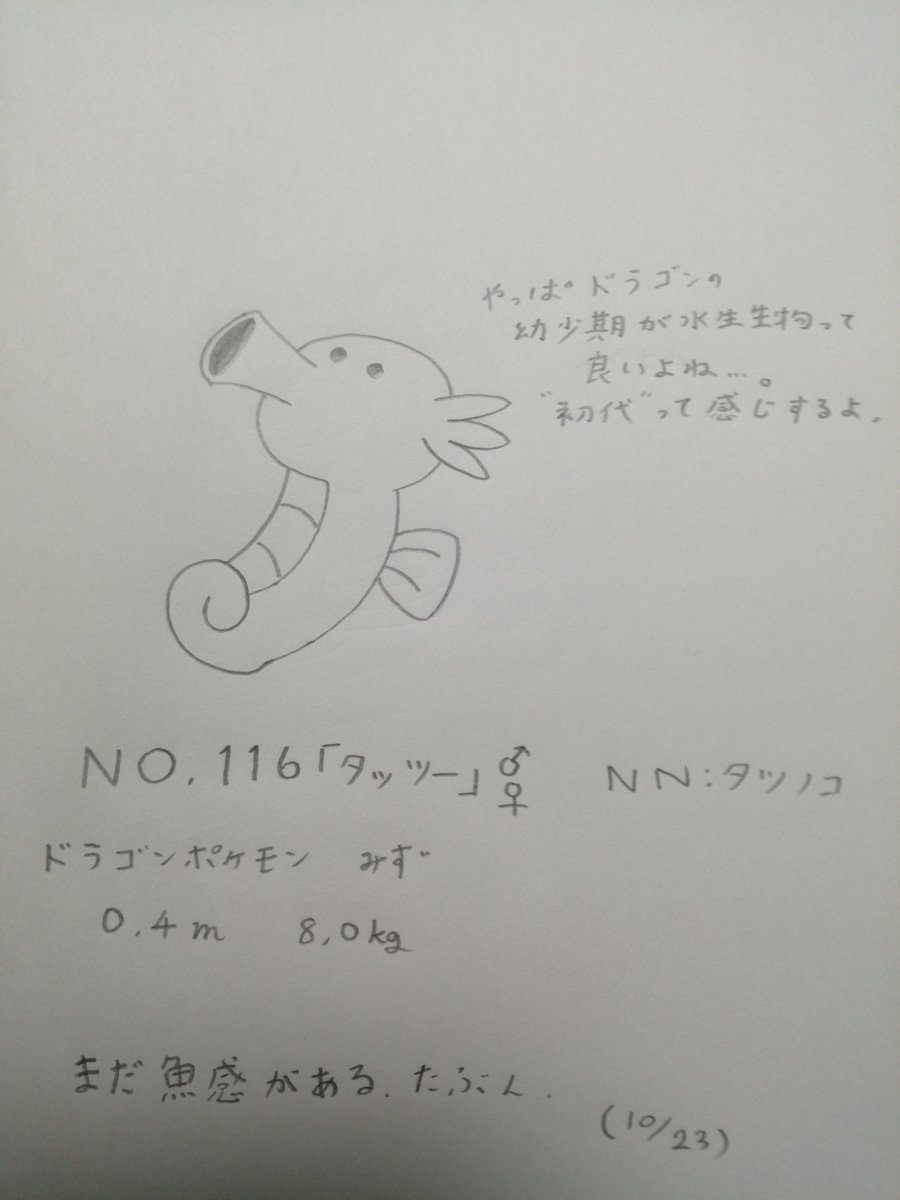 やっぱドラゴンの
幼少期が水生生物って
良いよね…。
"初代"って感じするよ.
NO.116「タッツー」♂♀
NN:タツノコ
ドラゴンポケモン みず
0.4m 8.0kg
まだ魚感がある.たぶん.
(10/23)